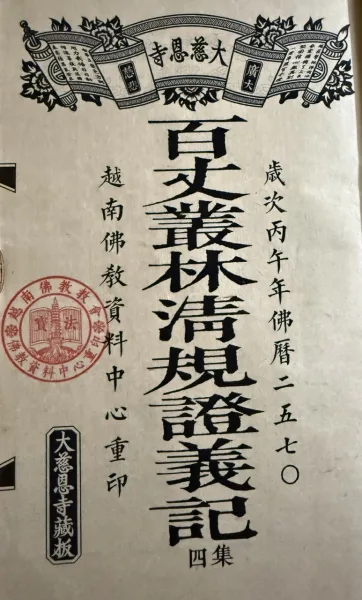 大慈恩寺
廣大
慈悲
歲次丙午年佛曆二五七〇
百丈叢林清規證義記
四集
越南佛教資料中心重印
越南佛教教會
法寶
佛教資料中心重印
大慈恩寺藏板